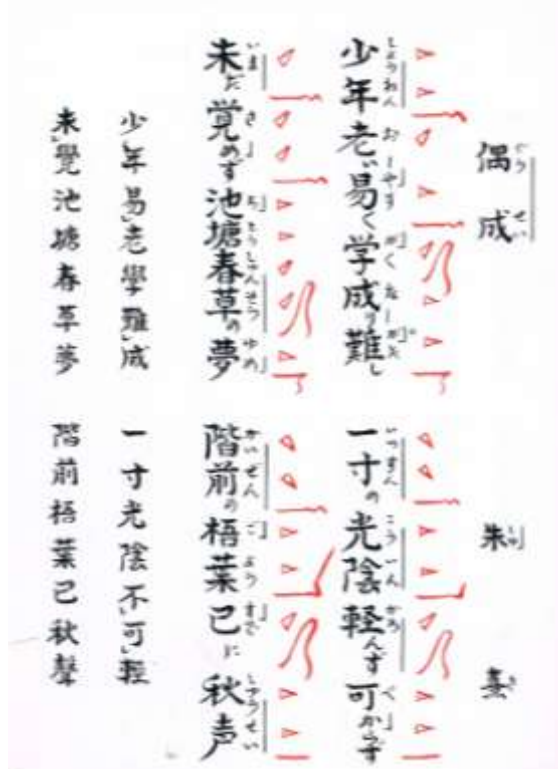 偶成
朱熹
少年老い易く学成り難し
一寸の光陰軽んず可からず
未だ覚めず池塘春草の夢
階前の梧葉已に秋声
少年易老學難成
一寸光陰不可輕
未覺池塘春草夢
階前梧葉已秋聲